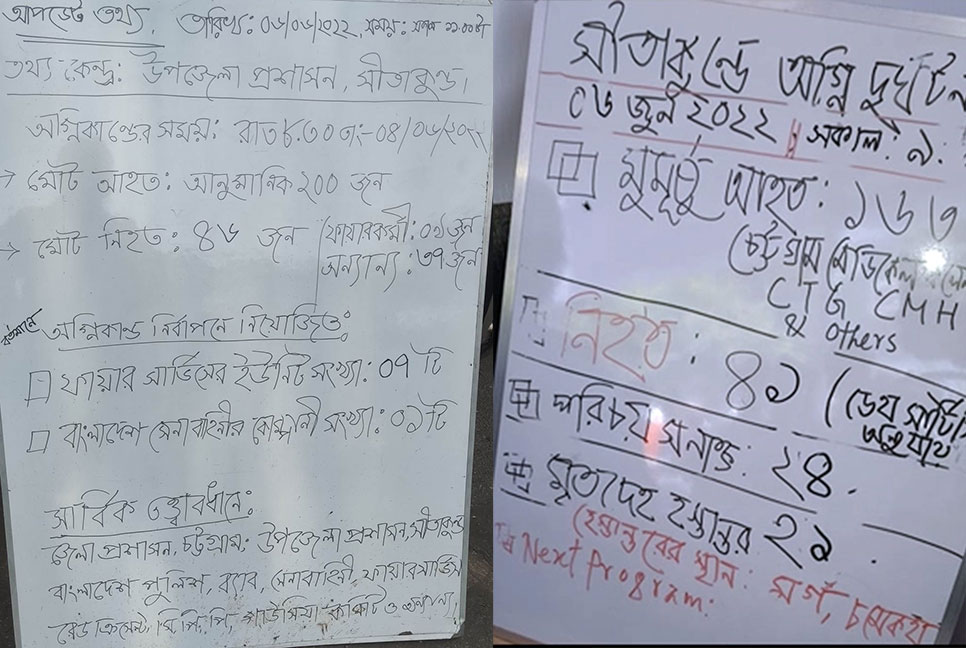 আপডেট তথ্য. তারিখ: ০৬/০৬/২০২২, সময়: সকাল ১১.০০টা
তথ্য কেন্দ্র: উপজেলা প্রশাসন, সীতাকুন্ড।
অগ্নিকান্ডের সময়: রাত ৮.৩০তা:-০৪/০৬/২০২২
→ মোট আহত: আনুমানিক ২০০ জন
→ মোট নিহত: ৪৬ জন (ফায়ারকর্মী: ০৯জন
অন্যান্য: ৩৭জন
বর্তমানে অগ্নিকান্ড নির্বাপনে নিয়োজিত:
ফায়ার সার্ভিসের ইউনিট সংখ্যা: ০৭ টি
বাংলাদেশ সেনাবাহিনীর কোম্পানী সংখ্যা: ০১টি
সার্বিক তত্ত্বাবধানে:
জেলা প্রশাসন, চট্টগ্রাম, উপজেলা প্রশাসন, সীতাকুন্ড
বাংলাদেশ পুলিশ, র‍্যাব, সেনাবাহিনী, ফায়ারসার্ভিস
রেড ক্রিসেন্ট, সি,পি,পি, গাউসিয়া কমিটি ও অন্যান্য,
সীতাকুন্ডে অগ্নি দুর্ঘটনা
০৬ জুন ২০২২ সকাল: ৯.
মুমূর্ষু আহত: ১৬৩
চট্টগ্রাম মেডিকেল
CTG CMH
& others
নিহত: ৪১ (ডেথ সার্টি
অনুযায়
পরিচয় সনাক্ত: ২৪.
মৃতদেহ হস্তান্তর ২১.
হস্তান্তরের স্থান: মর্গ, চমেকহা
Next Program: